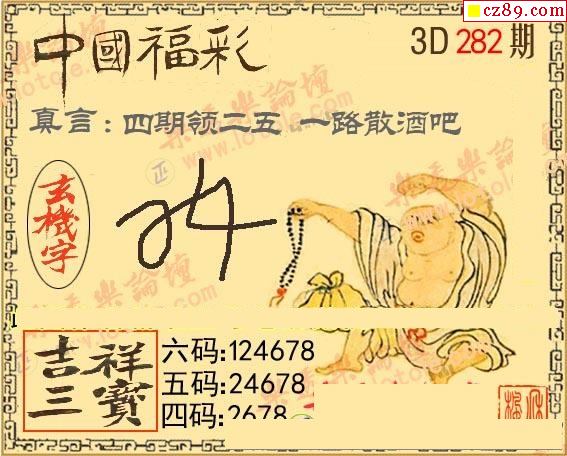 cz89.com
中國福彩
3D 282 期
真言：四期领二五 一路散酒吧
玄機字
吉祥三寳
六码:124678
五码:24678
四码:2678